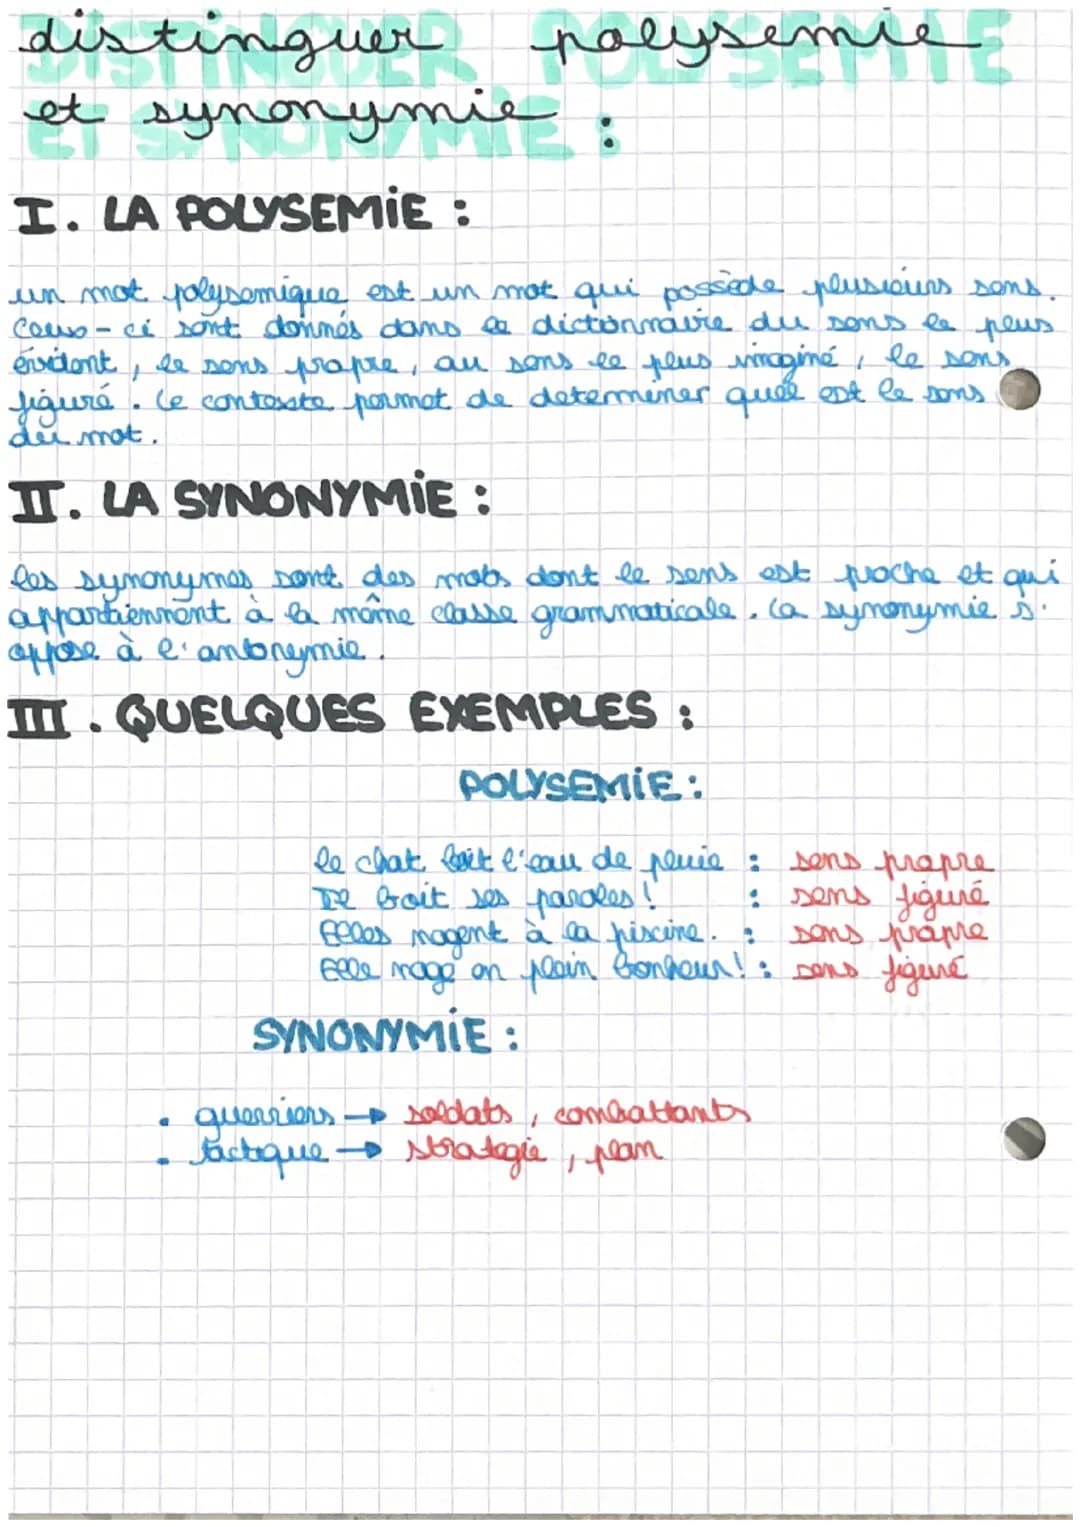 distinguer polysemie
DISTINGUER POLYSEMIE
et synonymie :
ET SYNONYMIE :
I. LA POLYSEMIE :
un mot polysemique est un mot qui possède plusieurs sens.
Ceux-ci sont donnés dans le dictionnaire du sens le plus
évident, le sens propre, au sens le plus imaginé, le sens
figuré. Le contexte permet de determiner quel est le sens
du mot.
II. LA SYNONYMIE :
les synonymes sont des mots dont le sens est proche et qui
appartiennent à la même classe grammaticale. La synonymie s'
oppose à l'antonymie.
III. QUELQUES EXEMPLES :
POLYSEMIE :
le chat boit l'eau de pluie : sens propre
Il boit ses paroles ! : sens figuré
Elles nagent à la piscine. : sens propre
Elle nage en plein bonheur ! : sens figuré
SYNONYMIE :
. guerriers → soldats, combattants
. tactique → strategie, plan